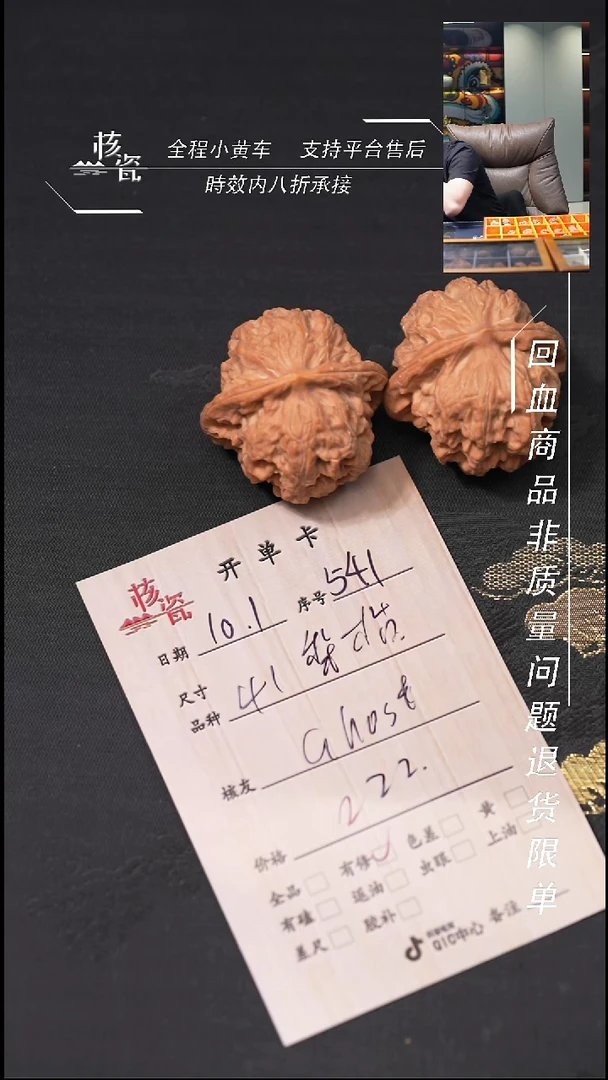 核瓷
全程小黄车 支持平台售后
時效内八折承接
回血商品非质量问题退货限单
开单卡
核瓷
日期 10.1 序号 541
尺寸
品种 41
核友 Ghost
价格 222.
全品 有修 色差 黄
有磕 返油 虫眼 上油
盖尺 胶补
QIC中心 备注